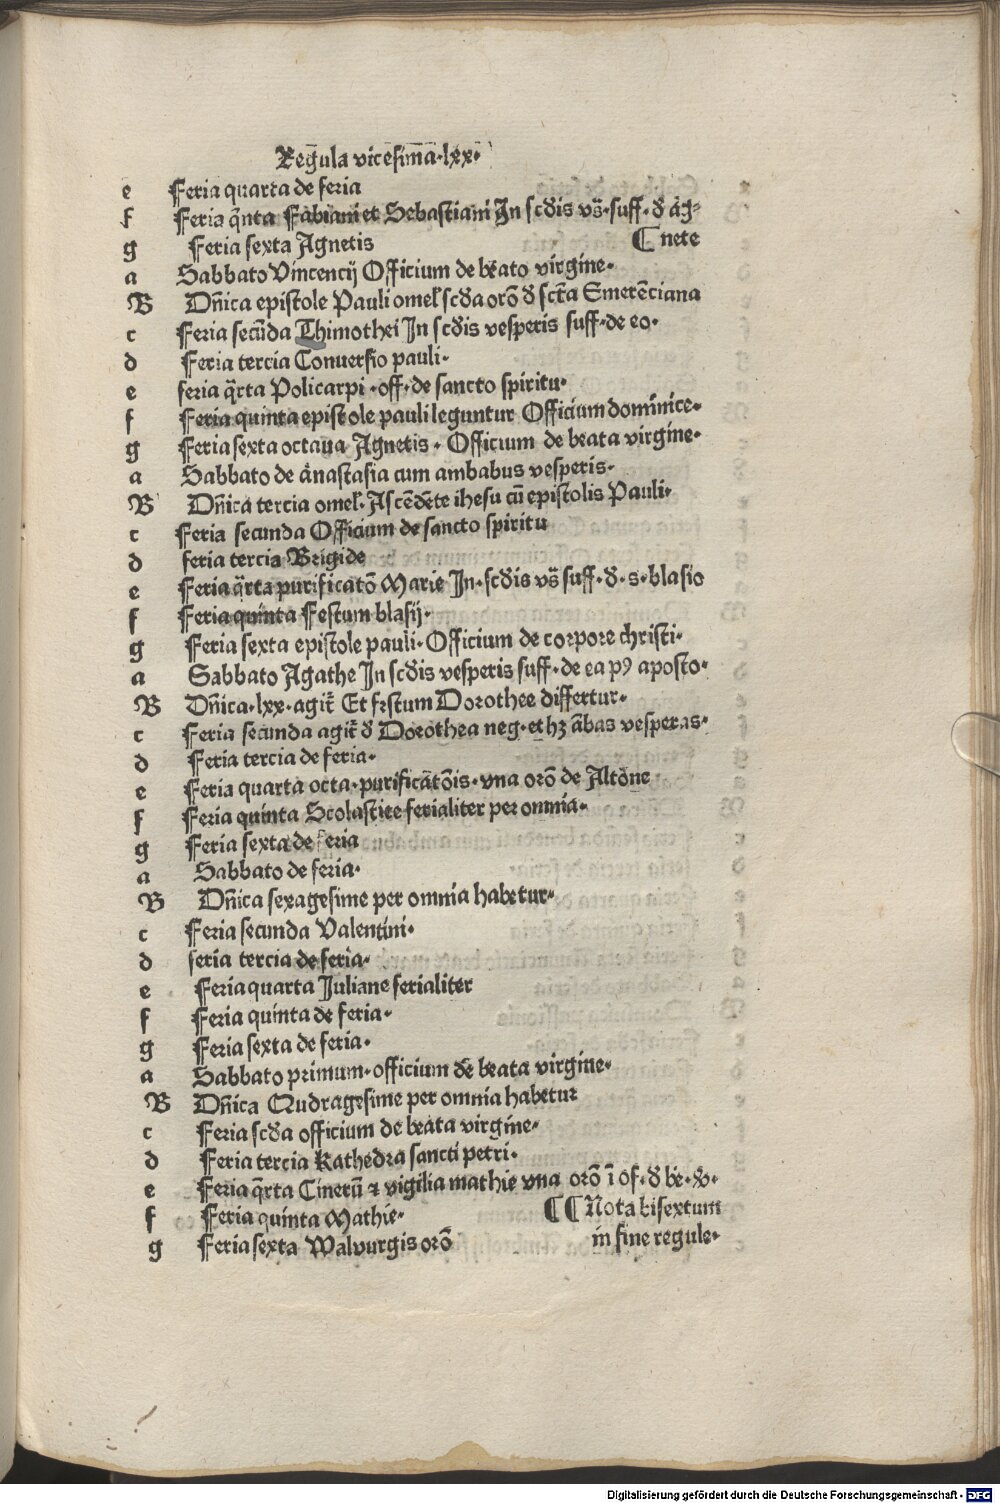 Regula vicesima·lxx·
e Feria quarta de feria
f Feria q̄nta Fabiani et Sebastiani In scďis vs̄·suff·ď Ag⸗
g Feria sexta Agnetis ⸿nete
a Sabbato Vincencij Officium de beato virgine·
B Dn̄ica epistole Pauli omel̛ scďa orō ď scta Emerēciana
c Feria secūda Thimothei In scďis vesperis suff·de eo·
d Feria tercia Conuersio pauli·
e feria q̄rta Policarpi·off·de sancto spiritu·
f Feria quinta epistole pauli leguntur Officium dominice·
g Feria sexta octaua Agnetis· Officium de beata virgine·
a Sabbato de anastasia cum ambabus vesperis·
B Dn̄ica tercia omel̛·Ascēdēte ihesu cū epistolis Pauli·
c Feria secunda Officium de sancto spiritu
d feria tercia Brigide
e Feria q̄rta purificatō Marie In·scďis vs̄ suff·ď·s·blasio
f Feria quinta Festum blasij·
g Feria sexta epistole pauli·Officium de corpore christi·
a Sabbato Agathe In scďis vesperis suff·de ea pꝰ aposto·
B Dn̄ica·lxx·agit̄ Et festum Dorothee differtur·
c Feria secunda agit̄ ď Dorothea neg·et hꝫ ābas vesperas·
d Feria tercia de feria·
e Feria quarta octa·purificatōis·vna orō de Altōne
f Feria quinta Scolastice ferialiter per omnia·
g Feria sexta de feria
a Sabbato de feria·
B Dn̄ica sexagesime per omnia habetur·
c Feria secunda Valentini·
d feria tercia de feria·
e Feria quarta Juliane ferialiter
f Feria quinta de feria·
g Feria sexta de feria·
a Sabbato primum·officium de beata virgine·
B Dn̄ica Qudragesime per omnia habetur
c Feria scďa officium de beata virgine·
d Feria tercia Kathedra sancti petri·
e Feria q̄rta Cinerū ⁊ vigilia mathie vna orō ī of·ď be·
f Feria quinta Mathie· ⸿⸿Nota bisextum
g Feria sexta Walpurgis orō in fine regule·
Digitalisierung gefördert durch die Deutsche Forschungsgemeinschaft - DFG